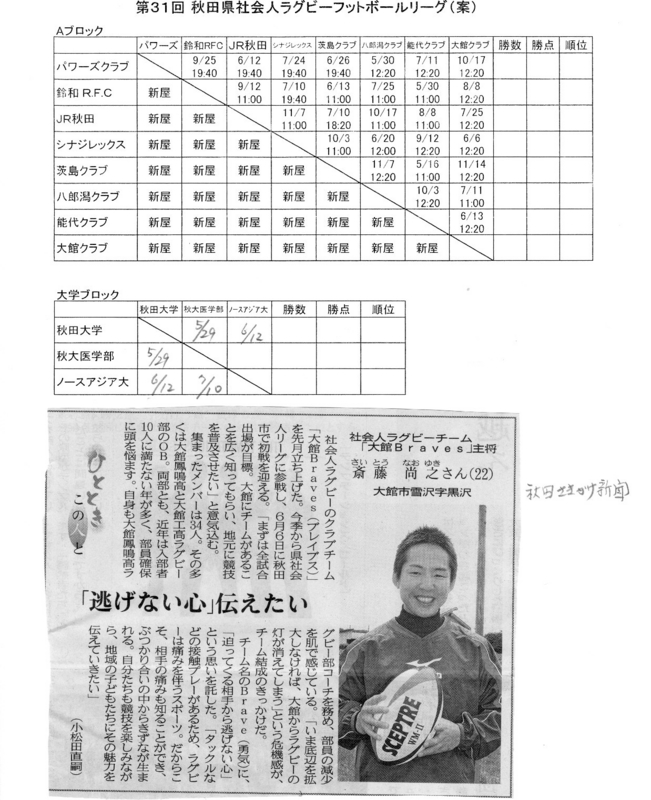 第31回 秋田県社会人ラグビーフットボールリーグ(案)
Aブロック
パワーズ 鈴和RFC JR秋田 シナジレックス 茨島クラブ 八郎潟クラブ 能代クラブ 大館クラブ 勝数 勝点 順位
パワーズクラブ 9/25 19:40 6/12 19:40 7/24 19:40 6/26 19:40 5/30 12:20 7/11 12:20 10/17 12:20
鈴和R.F.C 新屋 9/12 11:00 7/10 19:40 6/13 11:00 7/25 11:00 5/30 11:00 8/8 12:20
JR秋田 新屋 新屋 11/7 11:00 7/10 18:20 10/17 11:00 8/8 11:00 7/25 12:20
シナジレックス 新屋 新屋 新屋 10/3 11:00 6/20 12:00 9/12 12:20 6/6 12:20
茨島クラブ 新屋 新屋 新屋 新屋 11/7 12:20 5/16 11:00 11/14 12:20
八郎潟クラブ 新屋 新屋 新屋 新屋 新屋 10/3 12:20 7/11 11:00
能代クラブ 新屋 新屋 新屋 新屋 新屋 新屋 6/13 12:20
大館クラブ 新屋 新屋 新屋 新屋 新屋 新屋 新屋
大学ブロック
秋田大学 秋大医学部 ノースアジア大 勝数 勝点 順位
秋田大学 5/29 6/12
秋大医学部 5/29
ノースアジア大 6/12 7/10
ひととき
この人と
社会人ラグビーチーム
「大館Braves」主将
さいとう なおゆき
斎藤 尚之さん(22)
大館市雪沢字黒沢
秋田さきがけ新聞
社会人ラグビーのクラブチーム
「大館Braves(ブレイブス)」
を先月立ち上げた。今季から県社会
人リーグに参戦し、6月6日に秋田
市で初戦を迎える。「まずは全試合
出場が目標。大館にチームがあるこ
とを広く知ってもらい、地元に競技
を普及させたい」と意気込む。
集まったメンバーは34人。その多
くは大館鳳鳴高と大館工高ラグビー
部のOB。両部とも、近年は入部者
10人に満たない年が多く、部員確保
に頭を悩ます。自身も大館鳳鳴高ラ
「逃げない心」伝えたい
グビー部コーチを務め、部員の減少
を肌で感じている。「いま底辺を拡
大しなければ、大館からラグビーの
灯が消えてしまう」という危機感が、
チーム結成のきっかけだ。
チーム名のBrave(勇気)に、
「迫ってくる相手から逃げない心」
という思いを託した。「タックルな
どの接触プレーがあるため、ラグビ
ーは痛みを伴うスポーツ。だからこ
そ、相手の痛みも知ることができ、
ぶつかり合いの中からきずなが生ま
れる。自分たちも競技を楽しみなが
ら、地域の子どもたちにその魅力を
伝えていきたい」
(小松田直嗣)
SCEPTRE
WM-II